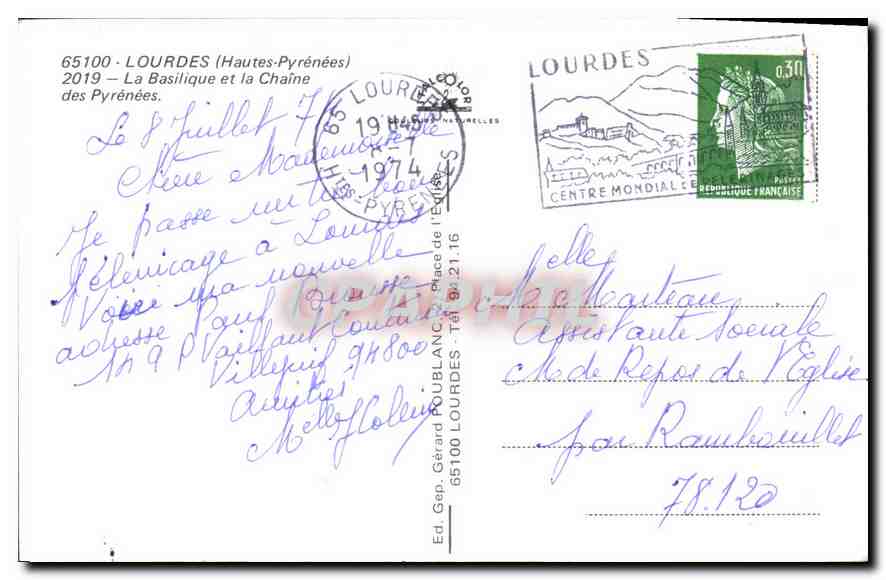 65100 - LOURDES (Hautes-Pyrénées)
2019 – La Basilique et la Chaîne
des Pyrénées.
Le 8 Juillet 74
Chère Mademoiselle
Je passe un très bon
Pèlerinage à Lourdes
Voici ma nouvelle
adresse
149 P Vaillant Couturier
Villejuif 94800
Amitiés
Melle
65 LOURDES
19H45
8-7
1974
HTES-PYRENEES
COULEURS NATURELLES
LOURDES
CENTRE MONDIAL DE PELERINAGE
0,30
POSTES
REPUBLIQUE FRANÇAISE
Ed. Gep. Gérard POUBLANC, 2, Place de l'Eglise
65100 LOURDES - Tél. 94.21.16
CPAPHIL
Melle
Marteau
Assistante Sociale
M de Repos de l'Eglise
par Rambouillet
78.120